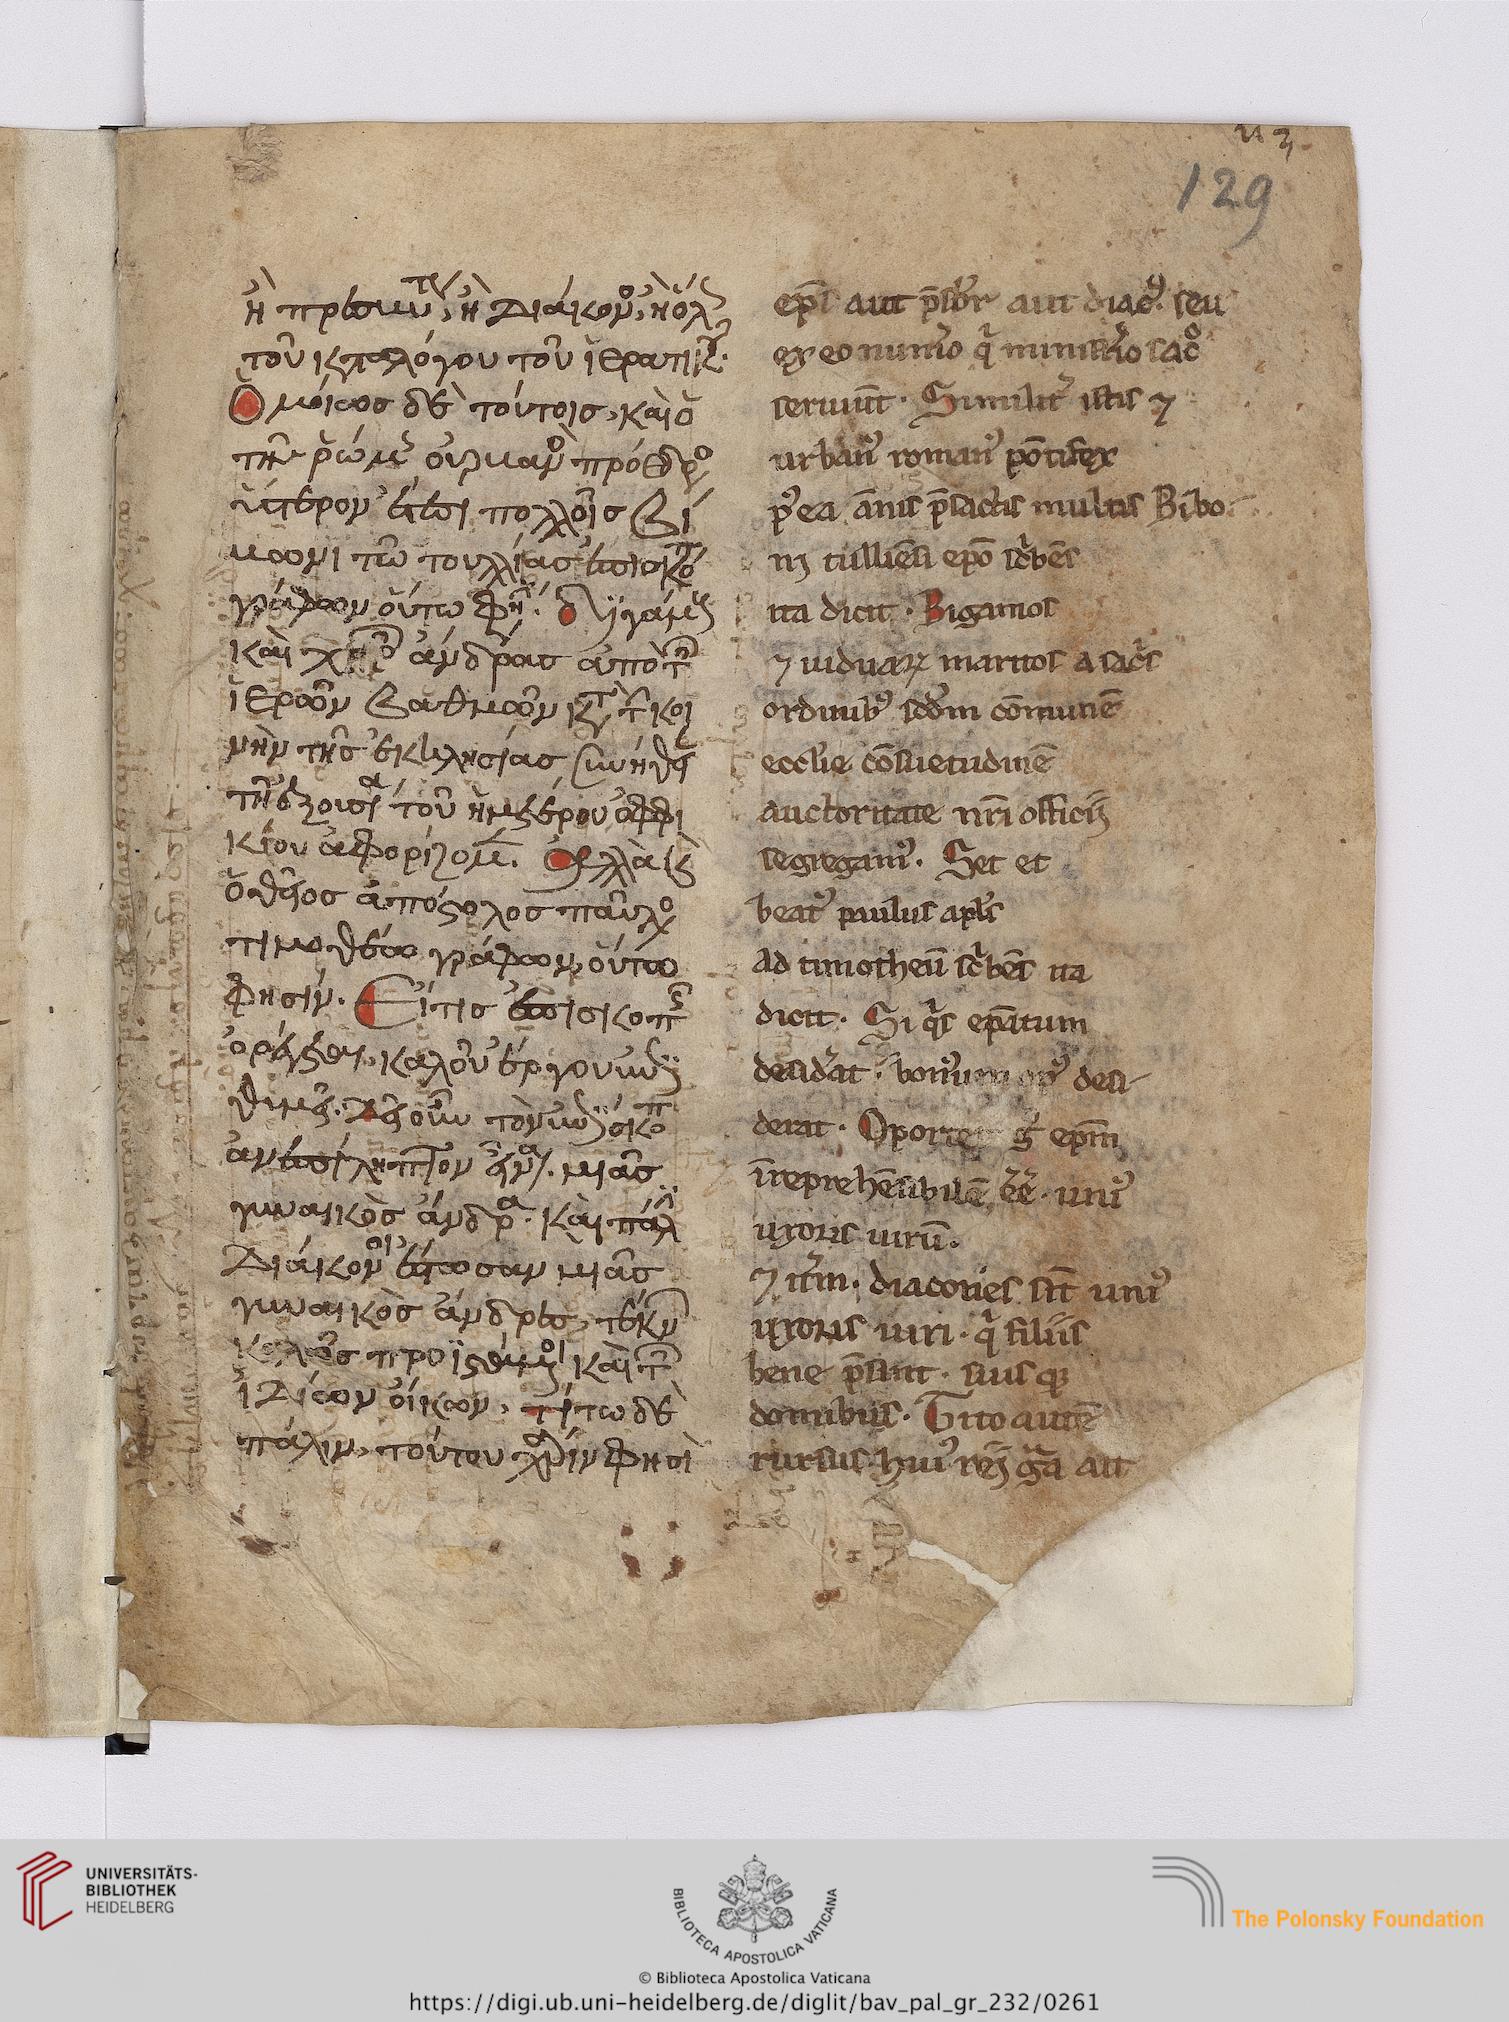 129
ἢ πρεσβυτ, ἢ Διάκονο, ἢ ὅλ
τοῦ καταλόγου τοῦ ἱερατικ.
Ὁμοίως δὲ τούτοις, καὶ ὁ
τῆς ῥώμ οὐρβανὸ πρόεδρο
ὕστερον ἔτεσι πολλοῖς Βί
μωνι τῶ τουλλίας ἐπισκοπ
γράφων οὕτω φη. διγάμους
καὶ χηρ ἄνδρας ἀπὸ τῶν
ἱερῶν βαθμῶν κατὰ τὴν κοι
νὴν τῆς ἐκκλησίας συνήθει
τῆ ἐξουσία τοῦ ἡμετέρου ὀφφι
κίου ἀφορίζομεν. Ἀλλὰ καὶ
ὁ θεῖος ἀπόστολος παῦλο
τιμοθέω γράφων, οὕτω
φησίν. Εἴ τις ἐπισκοπῆς
ὀρέγεται, καλοῦ ἔργου ἐπι
θυμεῖ. Δεῖ οὖν τὸν ἐπίσκοπ
ἀνεπίληπτον εἶναι. μιᾶς
γυναικὸς ἄνδρα. καὶ πάλι
Διάκονοι ἔστωσαν μιᾶς
γυναικὸς ἄνδρες, τέκνων
καλῶς προϊστάμενοι καὶ τῶν
ἰδίων οἴκων, τίτω δὲ
πάλιν, τούτου χάριν φησὶ
epī aut p̄sbr aut diac9. seu
ex eo numīo q̄ minist̄io sac̊
seruiūt. Similit᷑ istis ⁊
urban9 roman9 pōtifex
p9 ea ānis p̄factis multis Bibo
ni tulliēsi epō sc͛bēs
ita dicit. Bigamos
⁊ uiduaꝝ maritos a sac͛s
ordinib9 scd̄m cōmunē
ecclie cōsuetudinē
auctoritate nr̄i officij
segregam9. Set et
beat9 paulus apl̄s
ad timotheū sc͛bēs ita
dicit. Si q͛s epatum
desid͛at. bonum op9 desi-
derat. Oportet g͛ epm̄
īreprehēsibilē ēē. uni9
uxoris uirū.
⁊ it͛m. diacones sīt uni9
uxoris uiri. q͛ filiis
bene p̄sint. suis qꝫ
domibus. Tito autē
rursus hui9 rei gr̄a ait
UNIVERSITÄTS-
BIBLIOTHEK
HEIDELBERG
BIBLIOTECA APOSTOLICA VATICANA
© Biblioteca Apostolica Vaticana
The Polonsky Foundation
https://digi.ub.uni-heidelberg.de/diglit/bav_pal_gr_232/0261